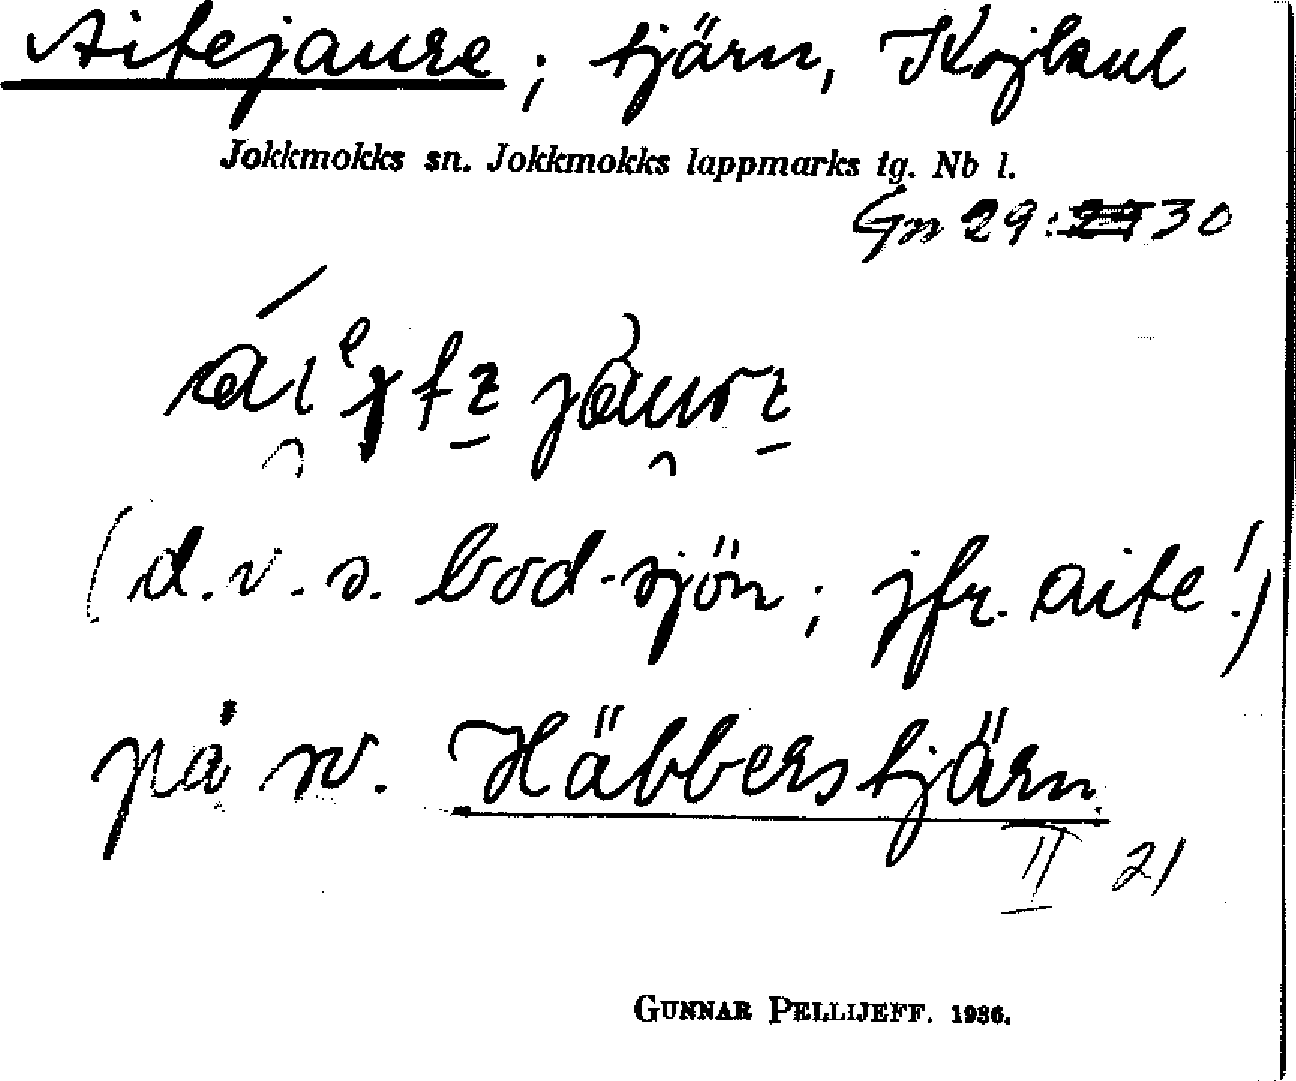 Aitejaure; tjärn, Kojlaul
Jokkmokks sn. Jokkmokks lappmarks tg. Nb l.
Gn 29: 30
(d.v.s. bod-sjön; jfr. aite!)
på sv. Häbberstjärn
II 21
GUNNAR PELLIJEFF. 1936.